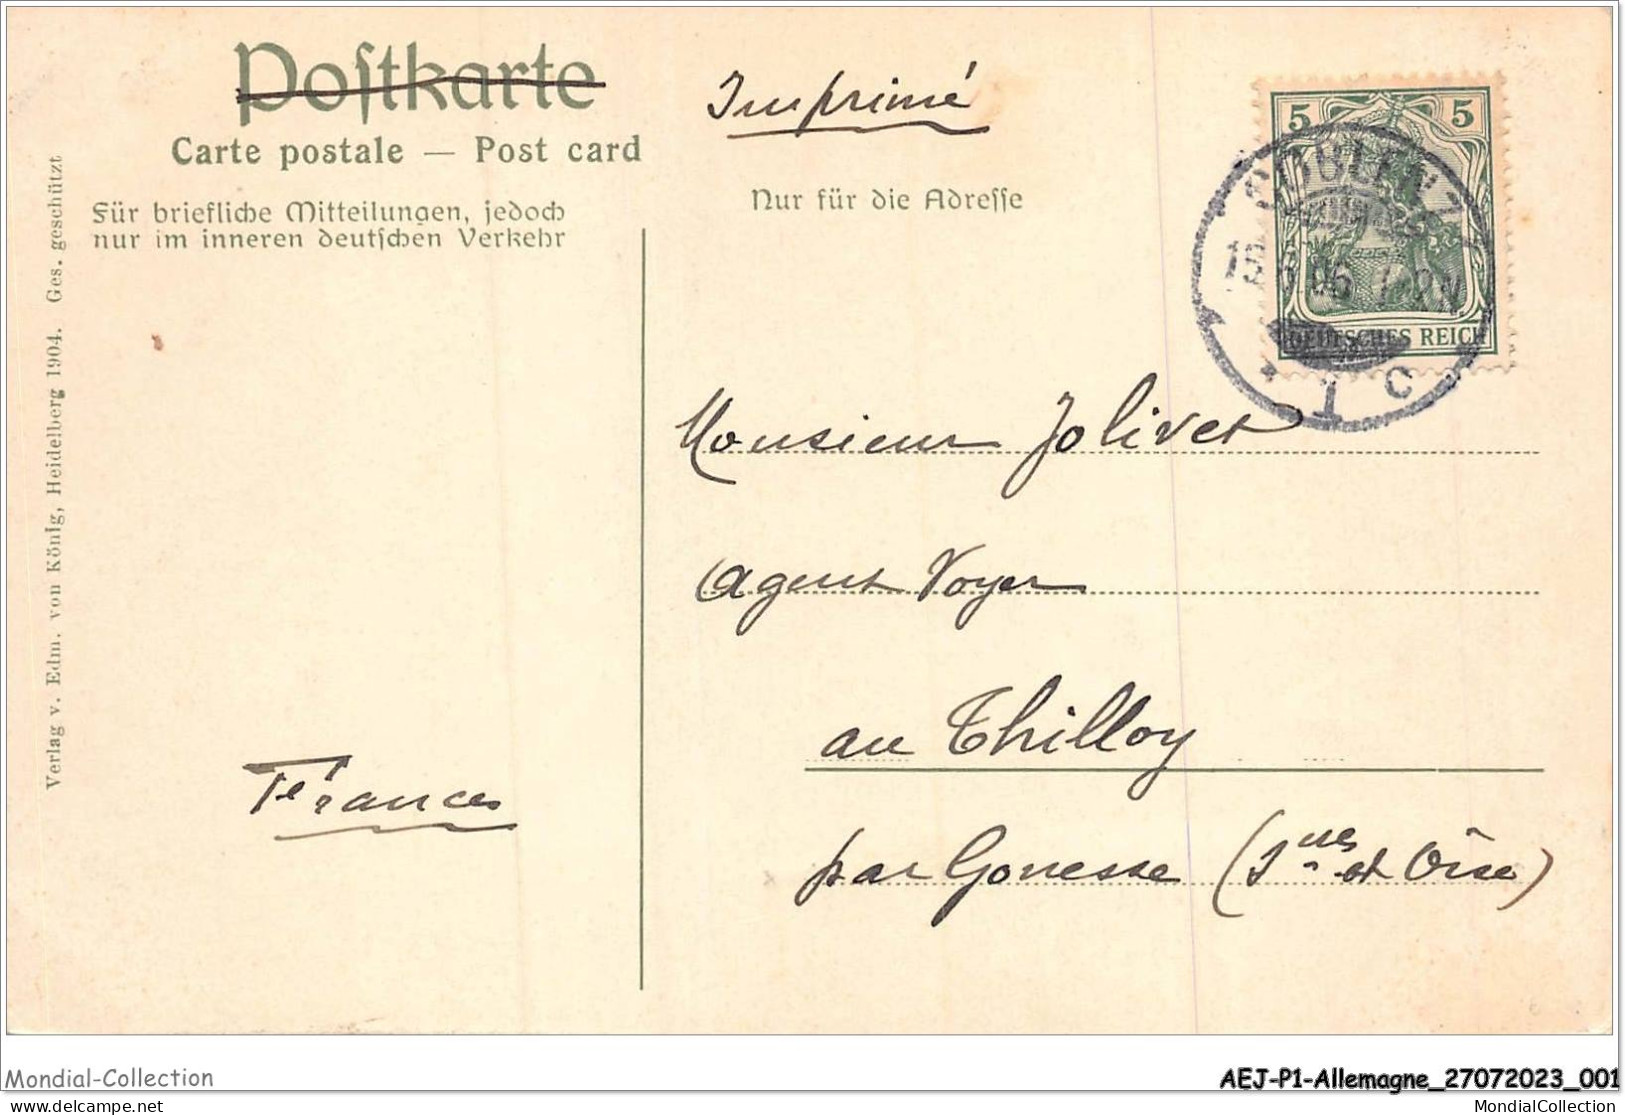 Postkarte
Carte postale — Post card
Für briefliche Mitteilungen, jedoch
nur im inneren deutschen Verkehr
Verlag v. Edm. von König, Heidelberg 1904. Ges. geschützt
Imprimé
Nur für die Adresse
5 5
DEUTSCHES REICH
COBLENZ
1 C
Monsieur Jolivet
Agent Voyer
au Thilloy
par Gonesse (S ne et Oise)
France
Mondial-Collection
AEJ-P1-Allemagne_27072023_001
www.delcampe.net
MondialCollection